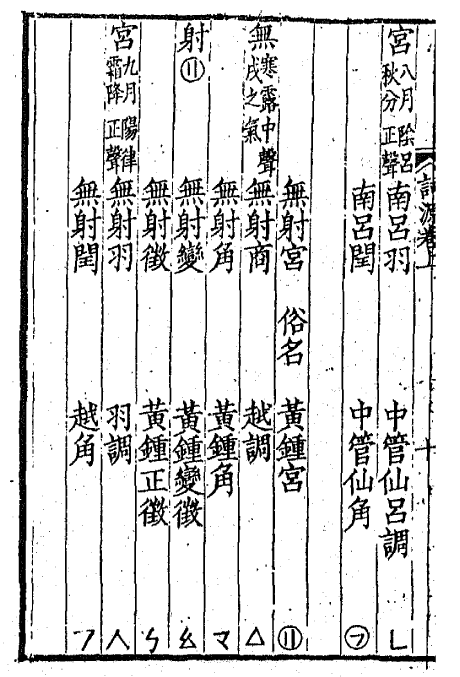 詞源卷上 十
宮 八月陰呂 秋分正聲 南呂羽 中管仙呂調 ㄴ
南呂閏 中管仙角 ㋫
無射宮 俗名 黃鍾宮 ⑪
無 寒露中聲 戌之氣 無射商 越調 △
無射角 黃鍾角 マ
射⑪ 無射變 黃鍾變徵 幺
無射徵 黃鍾正徵 ㄣ
宮 九月陽律 霜降正聲 無射羽 羽調 人
無射閏 越角 フ